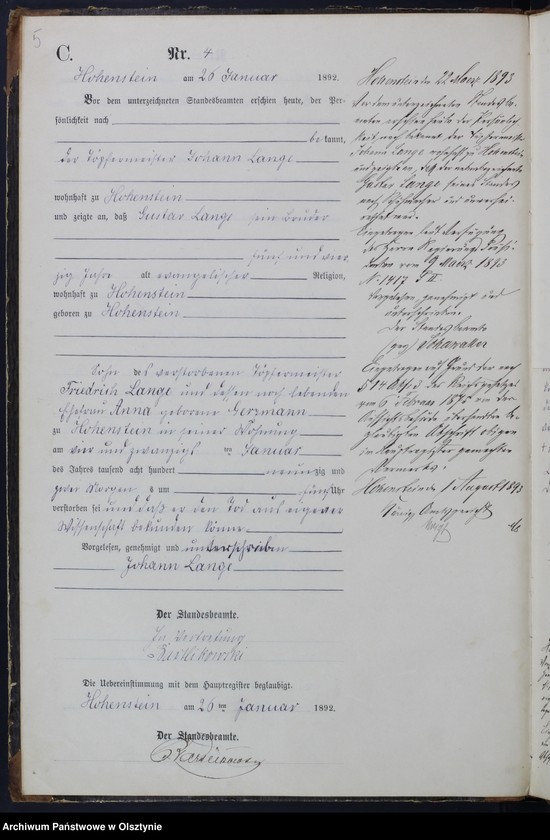 5
C.
Nr. 4
Hohenstein am 26 Januar 1892.
Vor dem unterzeichneten Standesbeamten erschien heute, der Per-
sönlichkeit nach
bekannt,
der Töpfermeister Johann Lange
wohnhaft zu Hohenstein
und zeigte an, daß Gustav Lange sein Bruder
fünf und vier
zig Jahre alt evangelischer Religion,
wohnhaft zu Hohenstein
geboren zu Hohenstein
Sohn des verstorbenen Töpfermeister
Friedrich Lange und dessen noch lebenden
Ehefrau Anna geborene Gerzmann
zu Hohenstein in seiner Wohnung
am vier und zwanzigsten Januar
des Jahres tausend acht hundert neunzig und
zwei Morgens um fünf Uhr
verstorben sei und daß er den Tod aus eigener
Wissenschaft bekunden könne
Vorgelesen, genehmigt und unterschrieben
Johann Lange
Der Standesbeamte.
In Vertretung
Die Uebereinstimmung mit dem Hauptregister beglaubigt.
Hohenstein am 26ten Januar 1892.
Der Standesbeamte.
Hohenstein den 22 März 1893
Vor dem unterzeichneten Standesbe-
amten erschien heute der Persönlich-
keit nach bekannt der Töpfermeister
Johann Lange wohnhaft zu Hohenstein
und zeigte an, daß der nebenbezeichnete
Gustav Lange seines Standes
nach und unverhei-
rathet sei.
Eingetragen laut Verfügung
des Herrn Regierungs Präsi-
denten vom 9 März 1893
N. 1417 P II.
Vorgelesen genehmigt und
unterschrieben
Der Standesbeamte
(gez)
Eingetragen auf Grund der nach
§ 14 Abs. 3 des Reichsgesetzes
vom 6 Februar 1875 von der
Aufsichtsbehörde übersandten be-
glaubigten Abschrift obigen
im Hauptregister gemachten
Vermerks.
Hohenstein den 1 August 1893
Königl. Amtsgericht
Archiwum Państwowe w Olsztynie